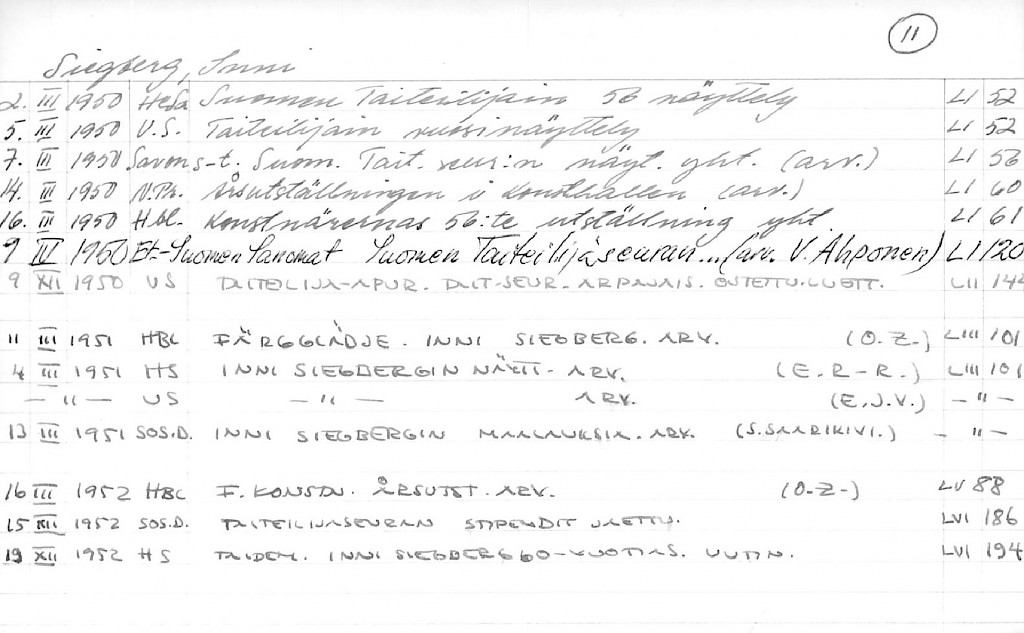 11
Siegberg, Inni
2. III 1950 HeSa Suomen Taiteilijain 56 näyttely LI 52
5. III 1950 U.S. Taiteilijain vuosinäyttely LI 52
7. III 1950 Savon s-t. Suom. Tait. seur:n näyt. yht. (arv.) LI 56
14. III 1950 N.Pr. Årsutställningen i Konsthallen (arv.) LI 60
16. III 1950 Hbl. Konstnärernas 56:te utställning yht. LI 61
9 IV 1950 Et.-Suomen Sanomat Suomen Taiteilijaseuran... (arv. V. Ahponen) LI 120
9 XII 1950 US TAITEILIJA-APUR. TAIT-SEUR. ARPAJAIS. OSTETTU.LUETT. LII 144
11 III 1951 HBL FÄRGGLÄDJE. INNI SIEGBERG. ARV. (O.Z.) LIII 101
4 III 1951 HS INNI SIEGBERGIN NÄYTT- ARV. (E.R-R.) LIII 101
— " — US — " — ARV. (E.J.V.) — " —
13 III 1951 SOS.D. INNI SIEGBERGIN MAALAUKSIA. ARV. (S.SAARIKIVI.) — " —
16 III 1952 HBL F. KONSTN. ÅRSUTST. ARV. (O.Z.) LV 88
15 XII 1952 SOS.D. TAITEILIJASEURAN STIPENDIT JAETTU. LVI 186
19 XII 1952 HS TAIDEM. INNI SIEGBERG 60-VUOTIAS. UUTIN. LVI 194